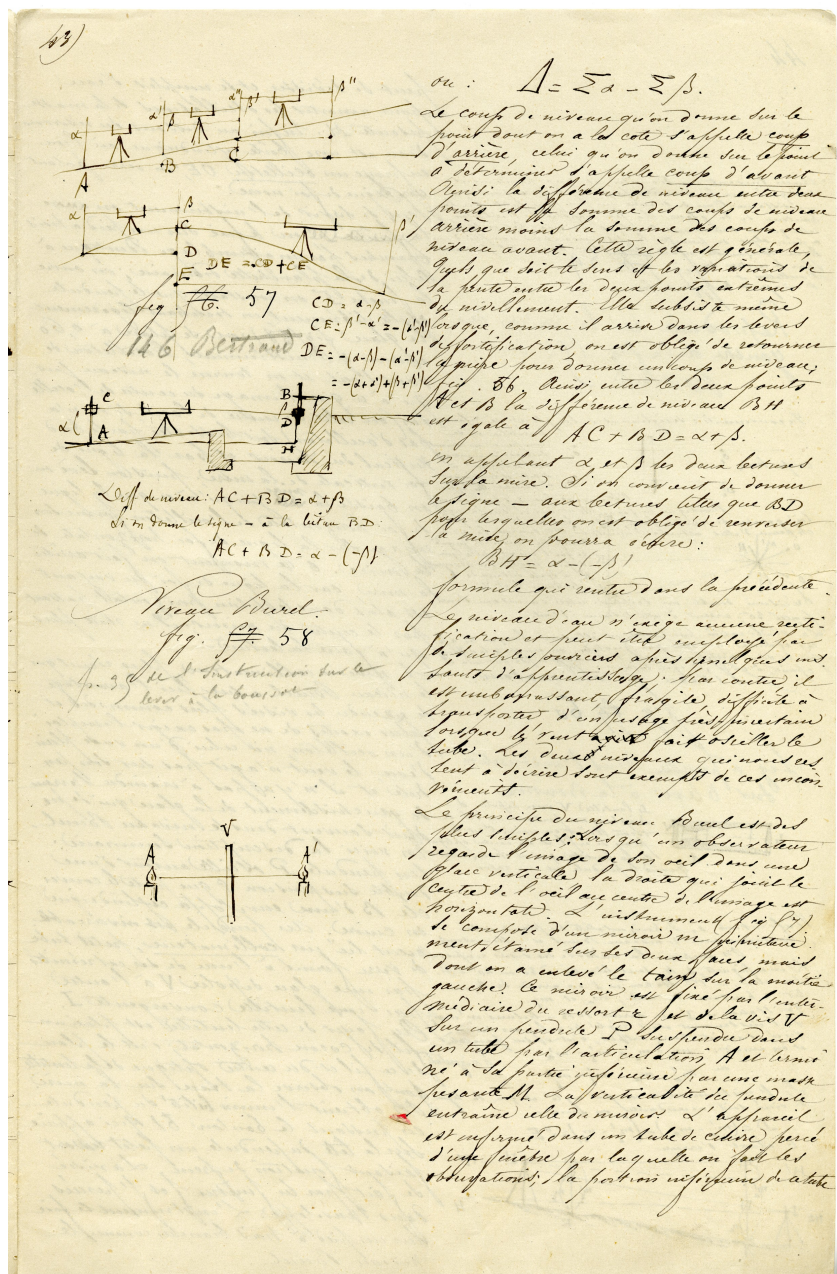 43)
α α' β α'' β' β''
A B C
α β C D E β'
DE = CD + CE
fig 56. 57
CD = α-β
CE = β'-α' = -(α'-β')
DE = -(α-β) - (α'-β')
= -(α+α') + (β+β')
146 Bertrand
α C A B β D H
Diff de niveau: AC + BD = α + β
Si on donne le signe - à la lecture BD:
AC + BD = α - (-β)
Niveau Burel.
fig. 57. 58
p. 35 de l'Instruction sur le
lever à la boussole
A V A'
ou : Δ = Σα - Σβ.
Le coup de niveau qu'on donne sur le
point dont on a la cote s'appelle coup
d'arrière, celui qu'on donne sur le point
à déterminer s'appelle coup d'avant
Ainsi la différence de niveau entre deux
points est la somme des coups de niveau
arrière moins la somme des coups de
niveau avant. Cette règle est générale,
quels que soit le sens et les variations de
la pente entre les deux points extrêmes
du nivellement. Elle subsiste même
lorsque, comme il arrive dans les levers
de fortification, on est obligé de retourner
la mire pour donner un coup de niveau;
fig. 56. Ainsi entre les deux points
A et B la différence de niveau BH
est égale à AC + BD = α + β.
en appelant α et β les deux lectures
sur la mire. Si on convient de donner
le signe - aux lectures telles que BD
pour lesquelles on est obligé de renverser
la mire, on pourra écrire :
BH = α - (-β)
formule qui rentre dans la précédente.
Le niveau d'eau n'exige aucune recti-
fication et peut être employé par
de simples ouvriers après quelques ins
tants d'apprentissage; par contre il
est embarrassant, fragile, difficile à
transporter, d'un usage très incertain
lorsque le vent fait osciller le
tube. Les deux niveaux qui nous res
tent à décrire sont exempts de ces incon-
vénients.
Le principe du niveau Burel est des
plus simples : lorsqu'un observateur
regarde l'image de son oeil dans une
glace verticale la droite qui joint le
centre de l'oeil au centre de l'image est
horizontale. L'instrument (fig 57)
se compose d'un miroir m primitive
ment étamé sur ses deux faces, mais
dont on a enlevé le tain sur la moitié
gauche. Ce miroir est fixé par l'inter-
médiaire du ressort r et de la vis V
sur un pendule P suspendu dans
un tube par l'articulation A et termi
né à sa partie inférieure par une masse
pesante M. La verticalité du pendule
entraîne celle du miroir. L'appareil
est enfermé dans un tube de cuivre percé
d'une fenêtre par laquelle on fait les
observations; la portion inférieure de ce tube